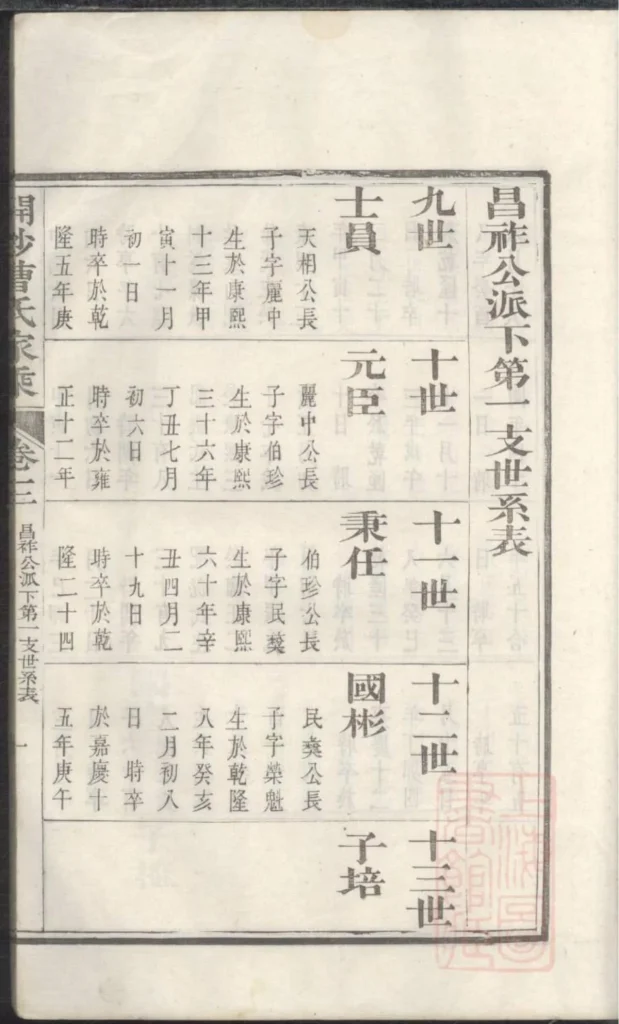 昌祚公派下第一支世系表
九世
士員
天相公長
子字麗中
生於康熙
十三年甲
寅十一月
初一日
時卒於乾
隆五年庚
十世
元臣
麗中公長
子字伯珍
生於康熙
三十六年
丁丑七月
初六日
時卒於雍
正十二年
十一世
秉任
伯珍公長
子字民獎
生於康熙
六十年辛
丑四月二
十九日
時卒於乾
隆二十四
十二世
國彬
民獎公長
子字榮魁
生於乾隆
八年癸亥
二月初八
日 時卒
於嘉慶十
五年庚午
十三世
子培
開沙曹氏家乘
卷三
昌祚公派下第一支世系表
一
上海圖書館藏